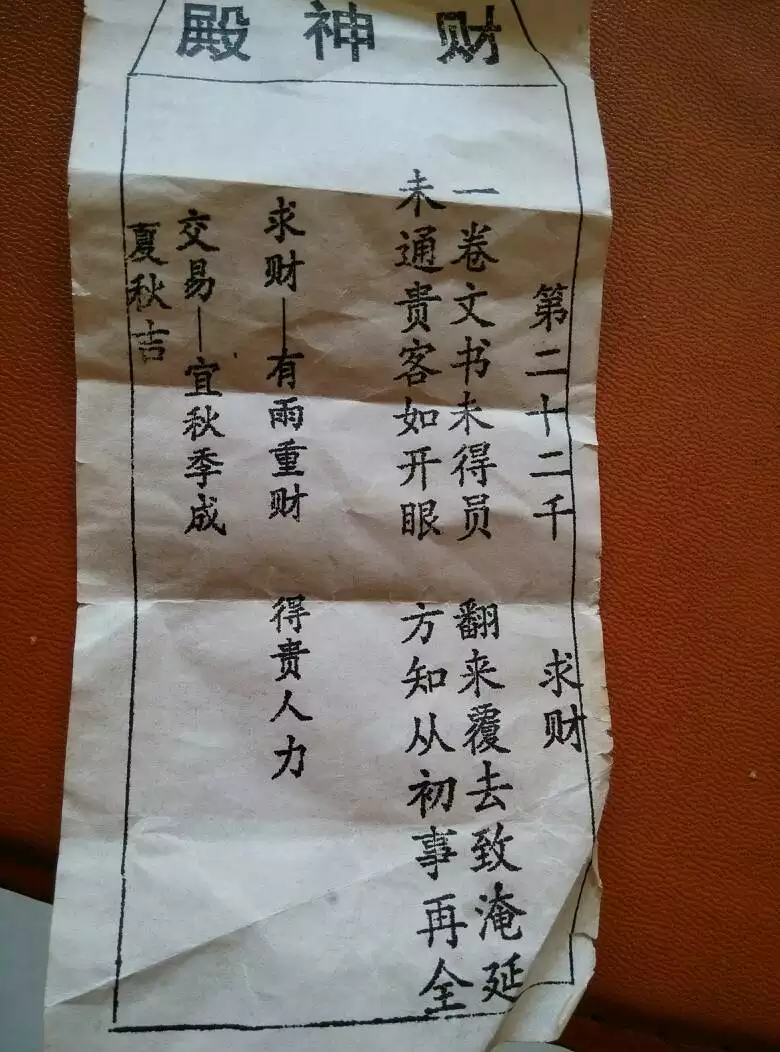 财神殿
第二十二千 求财
一卷文书未得员 翻来覆去致淹延
未通贵客如开眼 方知从初事再全
求财—有雨重财 得贵人力
交易—宜秋季成
夏秋吉